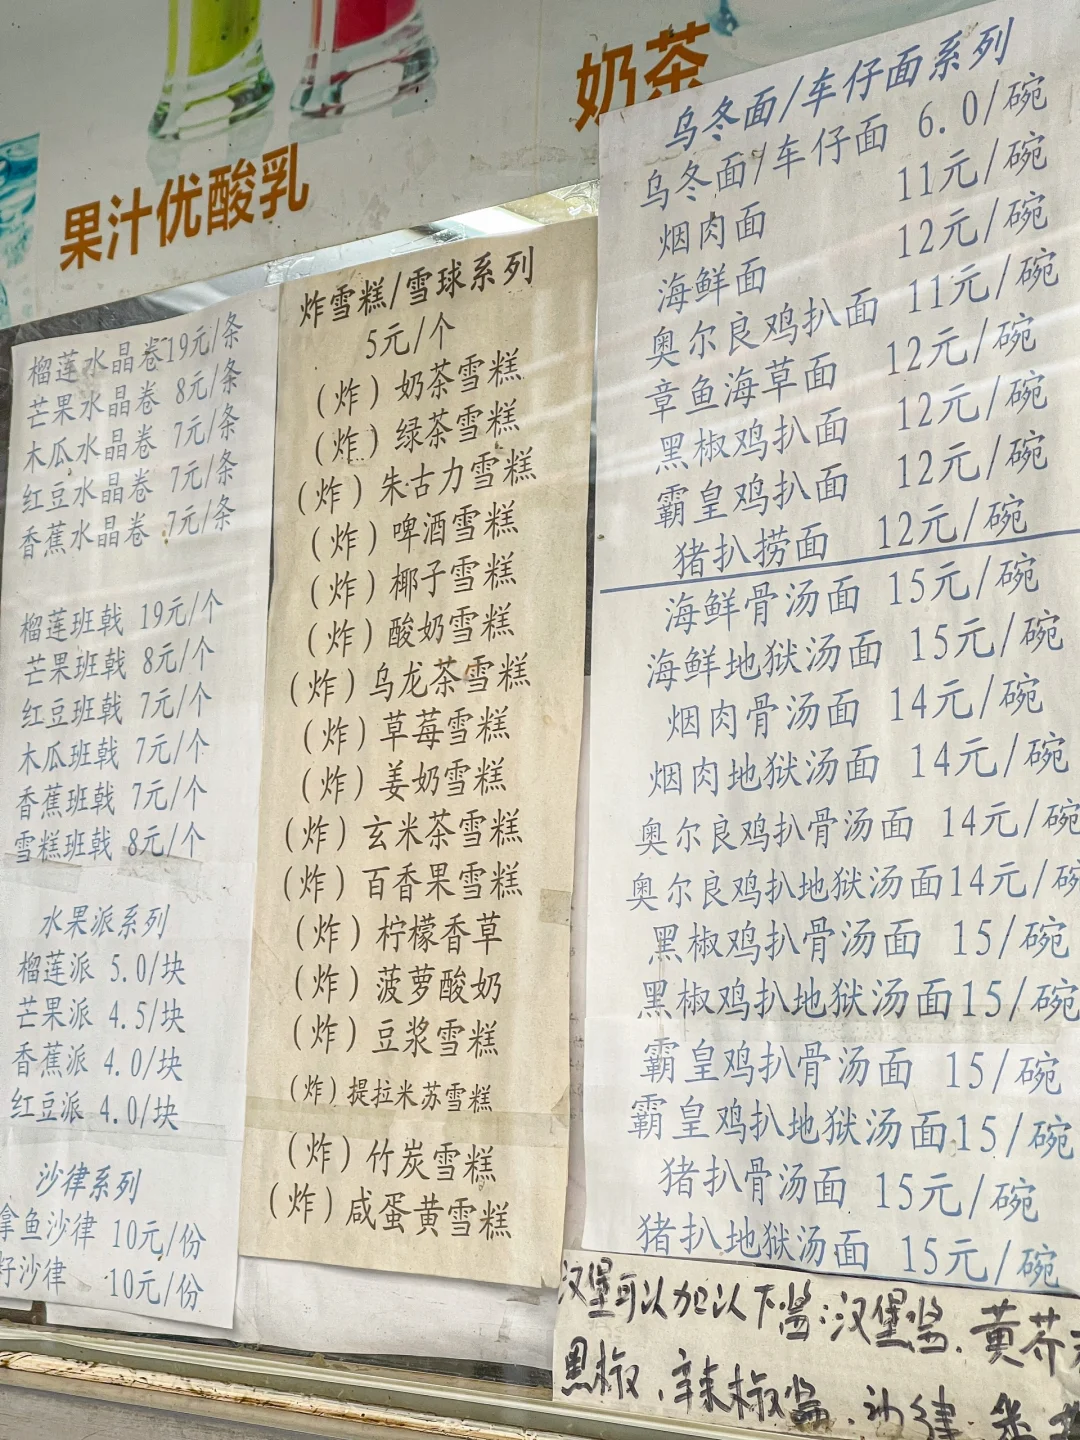 奶茶
果汁优酸乳
榴莲水晶卷19元/条
芒果水晶卷 8元/条
木瓜水晶卷 7元/条
红豆水晶卷 7元/条
香蕉水晶卷 7元/条
榴莲班戟 19元/个
芒果班戟 8元/个
红豆班戟 7元/个
木瓜班戟 7元/个
香蕉班戟 7元/个
雪糕班戟 8元/个
水果派系列
榴莲派 5.0/块
芒果派 4.5/块
香蕉派 4.0/块
红豆派 4.0/块
沙律系列
拿鱼沙律 10元/份
籽沙律 10元/份
炸雪糕/雪球系列
5元/个
(炸)奶茶雪糕
(炸)绿茶雪糕
(炸)朱古力雪糕
(炸)啤酒雪糕
(炸)椰子雪糕
(炸)酸奶雪糕
(炸)乌龙茶雪糕
(炸)草莓雪糕
(炸)姜奶雪糕
(炸)玄米茶雪糕
(炸)百香果雪糕
(炸)柠檬香草
(炸)菠萝酸奶
(炸)豆浆雪糕
(炸)提拉米苏雪糕
(炸)竹炭雪糕
(炸)咸蛋黄雪糕
乌冬面/车仔面系列
乌冬面/车仔面 6.0/碗
烟肉面 11元/碗
海鲜面 12元/碗
奥尔良鸡扒面 11元/碗
章鱼海草面 12元/碗
黑椒鸡扒面 12元/碗
霸皇鸡扒面 12元/碗
猪扒捞面 12元/碗
海鲜骨汤面 15元/碗
海鲜地狱汤面 15元/碗
烟肉骨汤面 14元/碗
烟肉地狱汤面 14元/碗
奥尔良鸡扒骨汤面 14元/碗
奥尔良鸡扒地狱汤面14元/碗
黑椒鸡扒骨汤面 15/碗
黑椒鸡扒地狱汤面15/碗
霸皇鸡扒骨汤面 15/碗
霸皇鸡扒地狱汤面15/碗
猪扒骨汤面 15元/碗
猪扒地狱汤面 15元/碗
汉堡可以加以下酱:汉堡酱.黄芥
黑椒.辣椒酱.沙律.